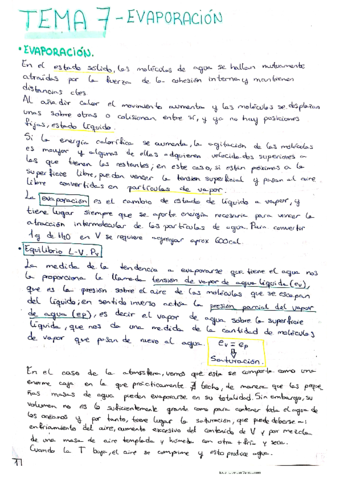 TEMA 7 - EVAPORACIÓN
• EVAPORACIÓN.
En el estado sólido, las moléculas de agua se hallan mutuamente
atraídas por la fuerza de la cohesión interna y mantienen
distancias ctes.
Al añadir calor el movimiento aumenta y las moléculas se desplazan
unas sobre otras o colisionan entre sí, y ya no hay posiciones
fijas, estado líquido.
Si la energía calorífica se aumenta, la agitación de las moléculas
es mayor y algunas de ellas adquieren velocidades superiores a
las que tienen las restantes; en este caso, si están próximas a la
superficie libre, pueden vencer la tensión superficial y pasan al aire
libre convertidas en partículas de vapor.
La evaporación es el cambio de estado de líquido a vapor, y
tiene lugar siempre que se aporte energía necesaria para vencer la
atracción intermolecular de las partículas de agua. Para convertir
1g de H2O en V se requiere agregar aprox 600cal.
• Equilibrio L-V. Pv
La medida de la tendencia a evaporarse que tiene el agua nos
la proporciona la llamada tensión de vapor de agua líquida (ev),
que es la presión sobre el aire de las moléculas que se escapan
del líquido; en sentido inverso actúa la presión parcial del vapor
de agua (ep), es decir el vapor de agua sobre la superficie
líquida, que nos da una medida de la cantidad de moléculas
de vapor que pasan de nuevo al agua.
ev = ep
Saturación.
En el caso de la atmósfera, vemos que esta se comporta como una
enorme caja en la que prácticamente ∄ techo, de manera que las peque
ñas masas de agua pueden evaporarse en su totalidad. Sin embargo, su
volumen no es lo suficientemente grande como para contener toda el agua de
los océanos y por tanto, tiene lugar la saturación, que puede deberse al
enfriamiento del aire, aumento excesivo del contenido de V y por mezcla
de una masa de aire templada y húmeda con otra + fría y seca.
Cuando la T baja, el aire se comprime y esto produce agua.